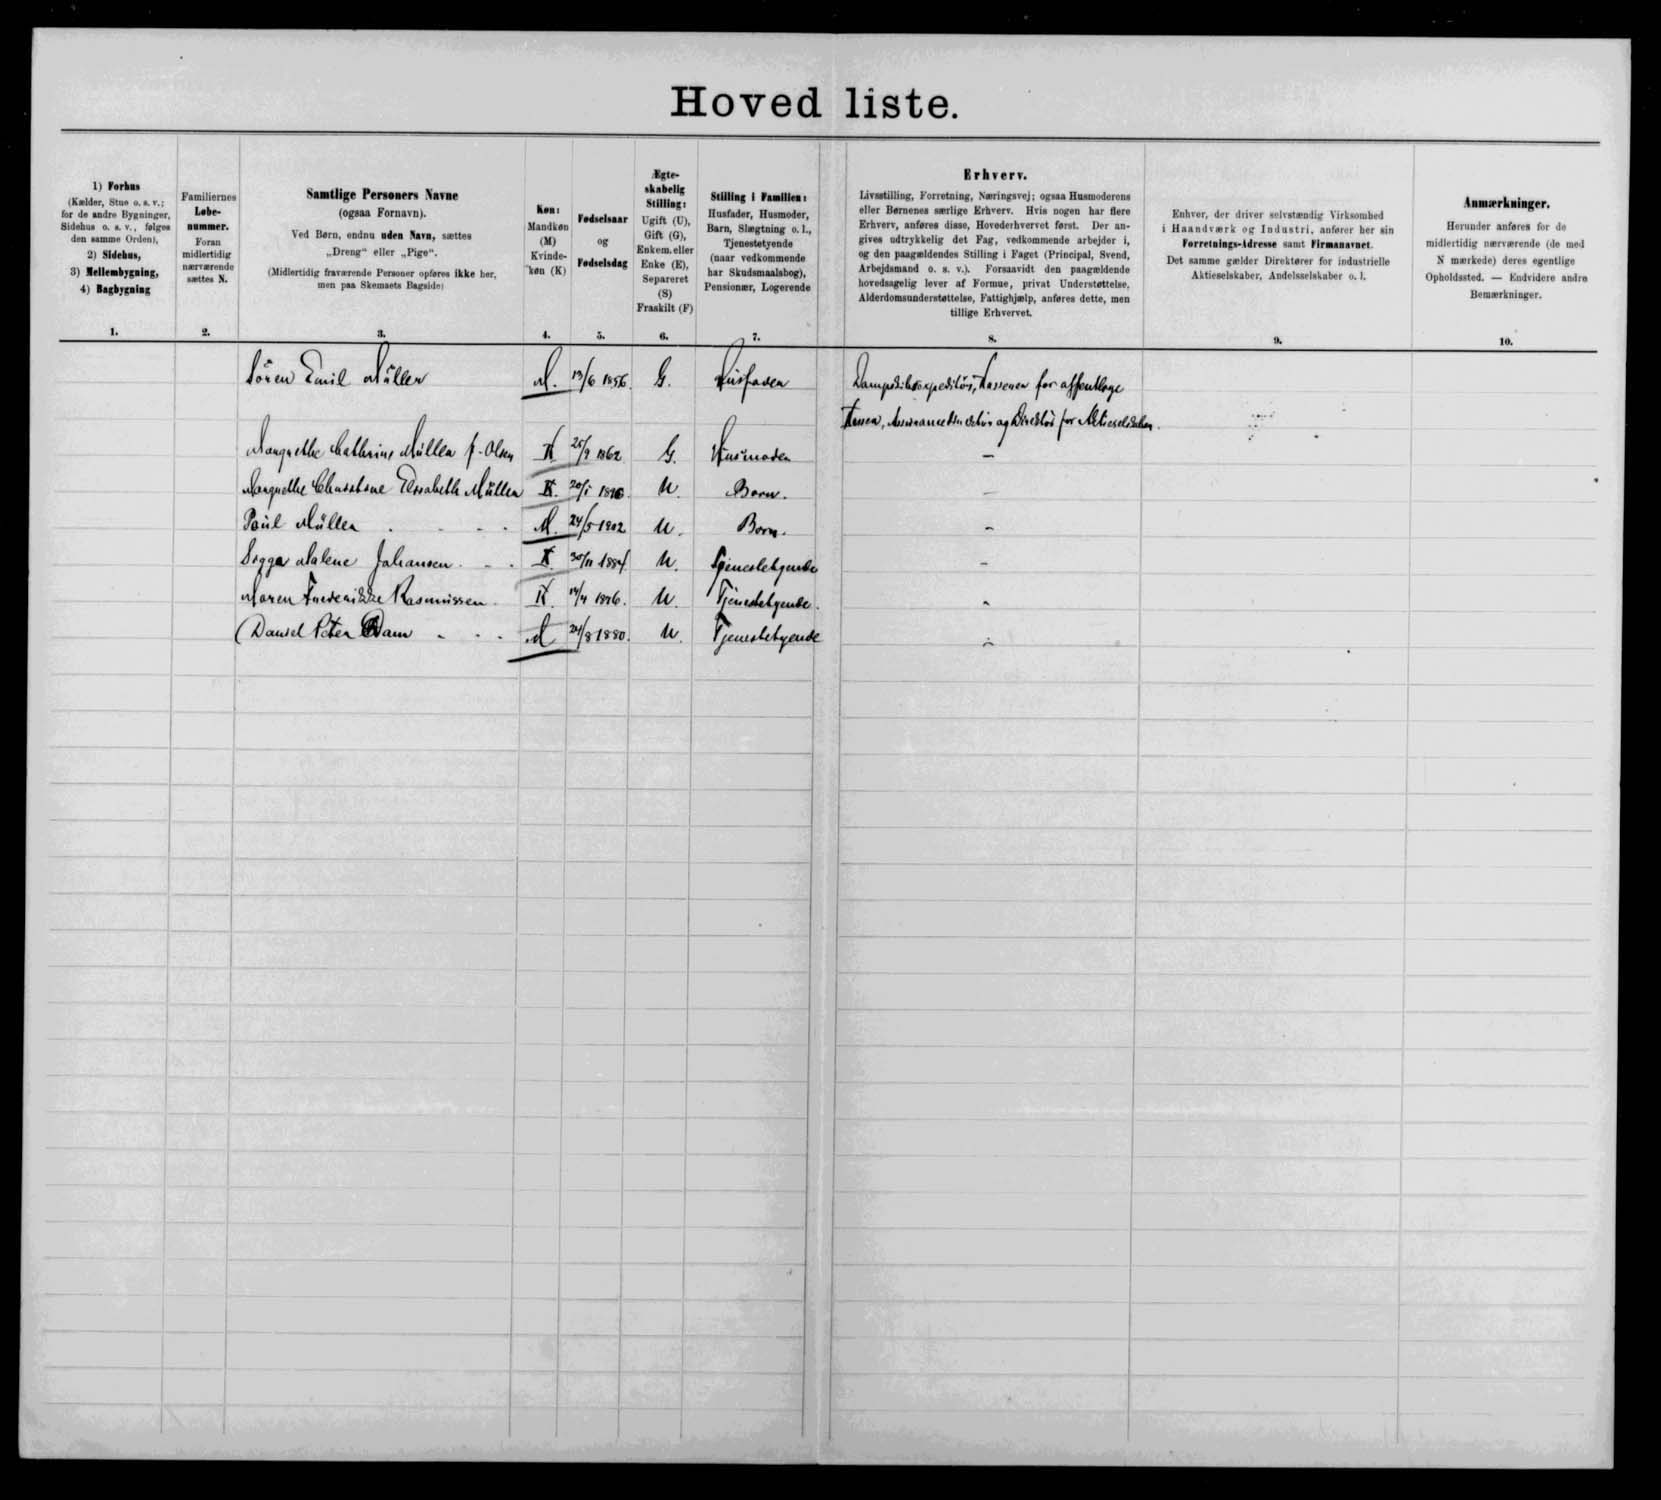 Hoved liste.
1) Forhus
(Kælder, Stue o. s. v.;
for de andre Bygninger,
Sidehus o. s. v., følges
den samme Orden),
2) Sidehus,
3) Mellembygning,
4) Bagbygning
1.
Familiernes
Løbe-
nummer.
Foran
midlertidig
nærværende
sættes N.
2.
Samtlige Personers Navne
(ogsaa Fornavn).
Ved Børn, endnu uden Navn, sættes
„Dreng“ eller „Pige“.
(Midlertidig fraværende Personer opføres ikke her,
men paa Skemaets Bagside)
3.
Køn:
Mandkøn
(M)
Kvinde-
køn (K)
4.
Fødselsaar
og
Fødselsdag
5.
Ægte-
skabelig
Stilling:
Ugift (U),
Gift (G),
Enkem. eller
Enke (E),
Separeret
(S)
Fraskilt (F)
6.
Stilling i Familien:
Husfader, Husmoder,
Barn, Slægtning o. l.,
Tjenestetyende
(naar vedkommende
har Skudsmaalsbog),
Pensionær, Logerende
7.
Erhverv.
Livsstilling, Forretning, Næringsvej; ogsaa Husmoderens
eller Børnenes særlige Erhverv. Hvis nogen har flere
Erhverv, anføres disse, Hovederhvervet først. Der an-
gives udtrykkelig det Fag, vedkommende arbejder i,
og den paagældendes Stilling i Faget (Principal, Svend,
Arbejdsmand o. s. v.). Forsaavidt den paagældende
hovedsagelig lever af Formue, privat Understøttelse,
Alderdomsunderstøttelse, Fattighjælp, anføres dette, men
tillige Erhvervet.
8.
Enhver, der driver selvstændig Virksomhed
i Haandværk og Industri, anfører her sin
Forretnings-Adresse samt Firmanavnet.
Det samme gælder Direktører for industrielle
Aktieselskaber, Andelsselskaber o. l.
9.
Anmærkninger.
Herunder anføres for de
midlertidig nærværende (de med
N mærkede) deres egentlige
Opholdssted. — Endvidere andre
Bemærkninger.
10.
Sören Emil Müller M. 13/6 1856. G. Husfader Dampskibsexpeditör, Kasserer for offentlige
Kasser, og Direktör for Aktieselskaber.
Margrethe Cathrine Müller f. Olsen K 25/9 1862 G. Husmoder –
Margrethe Elisabeth Müller K. U. Barn. –
Poul Müller M. 24/5 1902 U. Barn. –
Sigga Malene Johansen K. 30/11 1884. U. Tjenestetyende –
Maren Frederikke Rasmussen. K. 1876. U. Tjenestetyende. –
Daniel Peter Dam M 24/8 1880. U. Tjenestetyende –